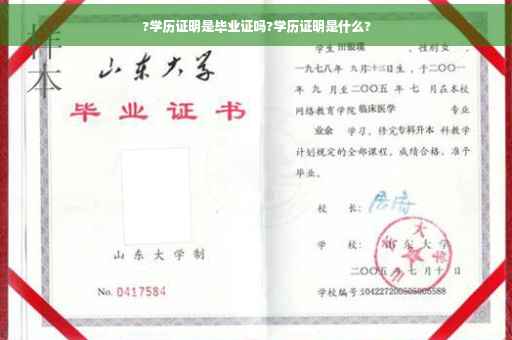 ?学历证明是毕业证吗?学历证明是什么?
样本
山东大学
毕业证书
山东大学制
No. 0417584
学生 田俊瑛 ,性别女,
一九七八年 九月十三日生,于二〇〇一
年 九 月至二〇〇五 年 七 月在本校
网络教育学院临床医学 专业
业余 学习,修完专科升本 科教学
计划规定的全部课程,成绩合格,准予
毕业。
校 长:
学 校: 山东大学
二〇〇五年七月十日
学校编号: